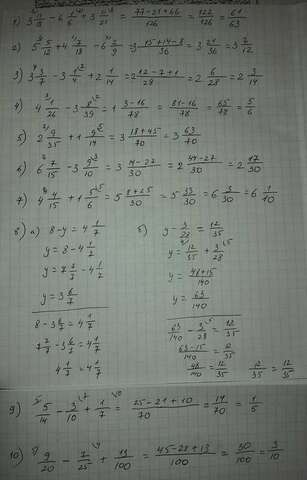 1) 3 11/18 - 6 1/6 + 3 11/21 = 77-21+66/126 = 122/126 = 61/63
2) 5 5/12 + 4 7/18 - 6 2/9 = 3 15+14-8/36 = 3 21/36 = 3 7/12
3) 3 3/7 - 3 1/4 + 2 1/14 = 2 12-7+1/28 = 2 6/28 = 2 3/14
4) 4 1/26 - 3 8/39 = 1 3-16/78 = 81-16/78 = 65/78 = 5/6
5) 2 9/35 + 1 9/14 = 3 18+45/70 = 3 63/70
6) 6 7/15 - 3 9/10 = 3 14-27/30 = 2 44-27/30 = 2 17/30
7) 4 4/15 + 1 5/6 = 5 8+25/30 = 5 33/30 = 6 3/30 = 6 1/10
8) а) 8-y = 4 1/7
y = 8-4 1/7
y = 7 7/7 - 4 1/7
y = 3 6/7
8 - 3 6/7 = 4 1/7
7 7/7 - 3 6/7 = 4 1/7
4 1/7 = 4 1/7
б) y - 3/28 = 12/35
y = 12/35 + 3/28
y = 48+15/140
y = 63/140
63/140 - 3/28 = 12/35
63-15/140 = 12/35
48/140 = 12/35 12/35 = 12/35
9) 5/14 - 3/10 + 1/7 = 25-21+10/70 = 14/70 = 1/5
10) 9/20 - 7/25 + 13/100 = 45-28+13/100 = 30/100 = 3/10